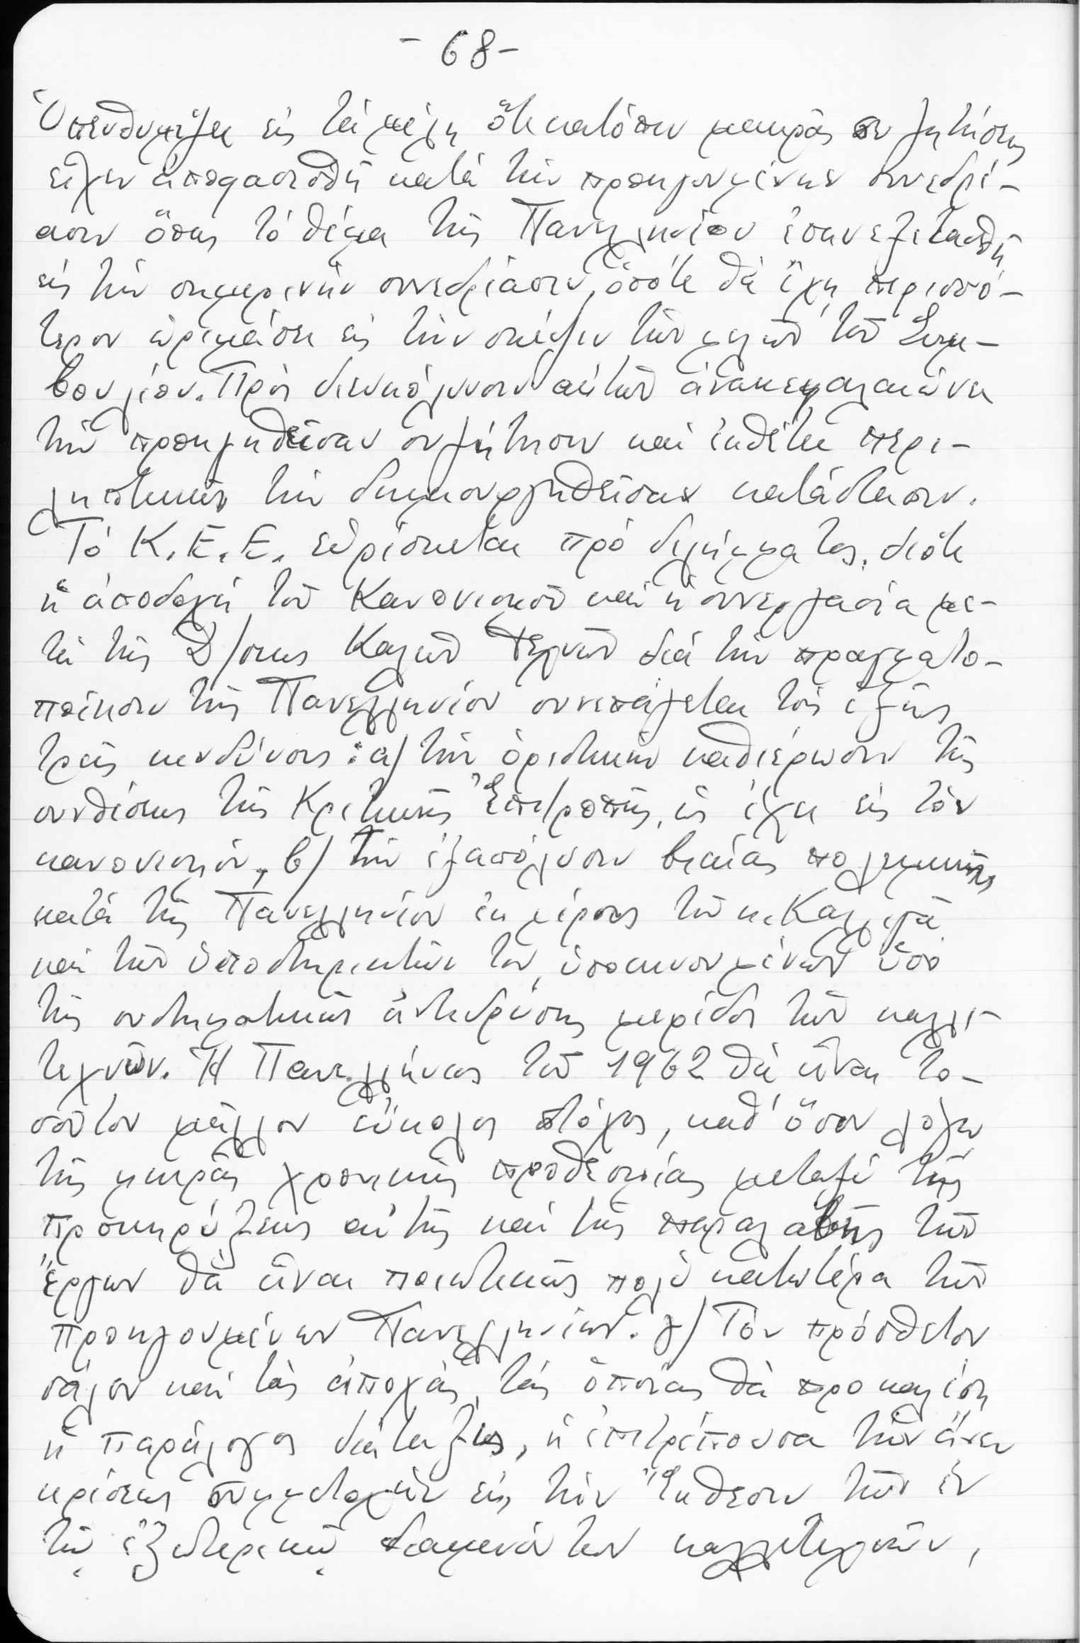 - 68 -
Ὑπενθυμίζει εἰς τά μέλη ὅτι κατόπιν μακρᾶς συζητήσεως
εἶχεν ἀποφασισθῆ κατά τήν προηγουμένην συνεδρί-
ασιν ὅπως τό θέμα τῆς Πανελληνίου ἐπανεξετασθῆ
εἰς τήν σημερινήν συνεδρίασιν, ὁπότε θά ἔχη περισσό-
τερον ὡριμάσει εἰς τήν σκέψιν τῶν μελῶν τοῦ Συμ-
βουλίου. Πρός διευκόλυνσιν αὐτῶν ἀνακεφαλαιώνει
τήν προηγηθεῖσαν συζήτησιν καί ἐκθέτει περι-
ληπτικῶς τήν δημιουργηθεῖσαν κατάστασιν.
Τό Κ.Ε.Ε. εὑρίσκεται πρό διλήμματος, διότι
ἡ ἀποδοχή τοῦ Κανονισμοῦ καί ἡ συνεργασία με-
τά τῆς Δ/σεως Καλῶν Τεχνῶν διά τήν πραγματο-
ποίησιν τῆς Πανελληνίου συνεπάγεται τούς ἑξῆς
τρεῖς κινδύνους : α) τήν ὁριστικήν καθιέρωσιν τῆς
συνθέσεως τῆς Κριτικῆς Ἐπιτροπῆς, ὡς ἔχει εἰς τόν
κανονισμόν, β) τήν ἐξαπόλυσιν βιαίας πολεμικῆς
κατά τῆς Πανελληνίου ἐκ μέρους τοῦ κ. Καλλιγᾶ
καί τῶν ὑποστηρικτῶν του, ὑποκινουμένων ὑπό
τῆς συστηματικῶς ἀντιδρώσης μερίδος τῶν καλλι-
τεχνῶν. Ἡ Πανελλήνιος τοῦ 1962 θά εἶναι το-
σοῦτον μᾶλλον εὔκολος στόχος, καθ' ὅσον λόγῳ
τῆς μικρᾶς χρονικῆς προθεσμίας μεταξύ τῆς
προκηρύξεως αὐτῆς καί τῆς παραλαβῆς τῶν
ἔργων θά εἶναι ποιοτικῶς πολύ κατωτέρα τῶν
προηγουμένων Πανελληνίων. γ) Τόν πρόσθετον
σάλον καί τάς ἀποχάς, τάς ὁποίας θά προκαλέσῃ
ἡ παράλογος διάταξις, ἡ ἐπιτρέπουσα τήν ἄνευ
κρίσεως συμμετοχήν εἰς τήν Ἔκθεσιν τῶν ἐν
τῷ ἐξωτερικῷ διαμενόντων καλλιτεχνῶν,